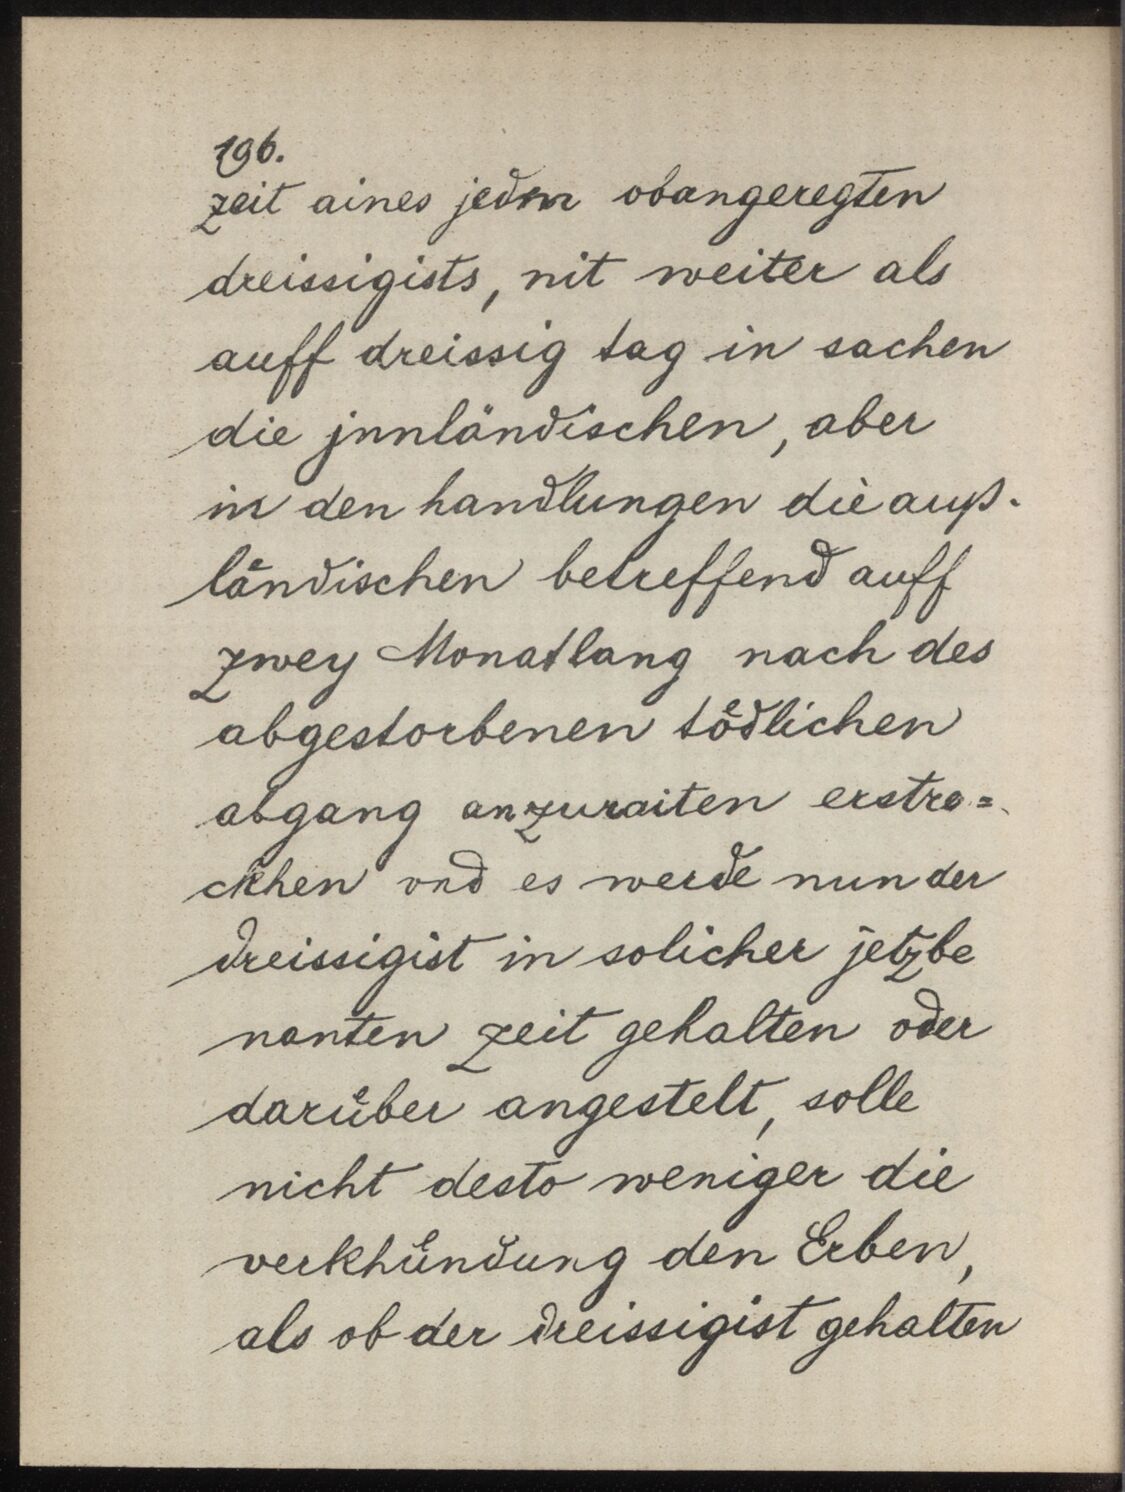 196.
zeit aines jedem obangeregten
dreissigists, nit weiter als
auff dreissig tag in sachen
die jnnländischen, aber
in den handlungen die auß-
ländischen betreffend auff
zwey Monatlang nach des
abgestorbenen tödlichen
abgang anzuraiten erstre=
ckhen vnd es werde nun der
dreissigist in solicher jetzbe
nanten zeit gehalten oder
darüber angestelt, solle
nicht desto weniger die
verkhündung den Erben,
als ob der dreissigist gehalten